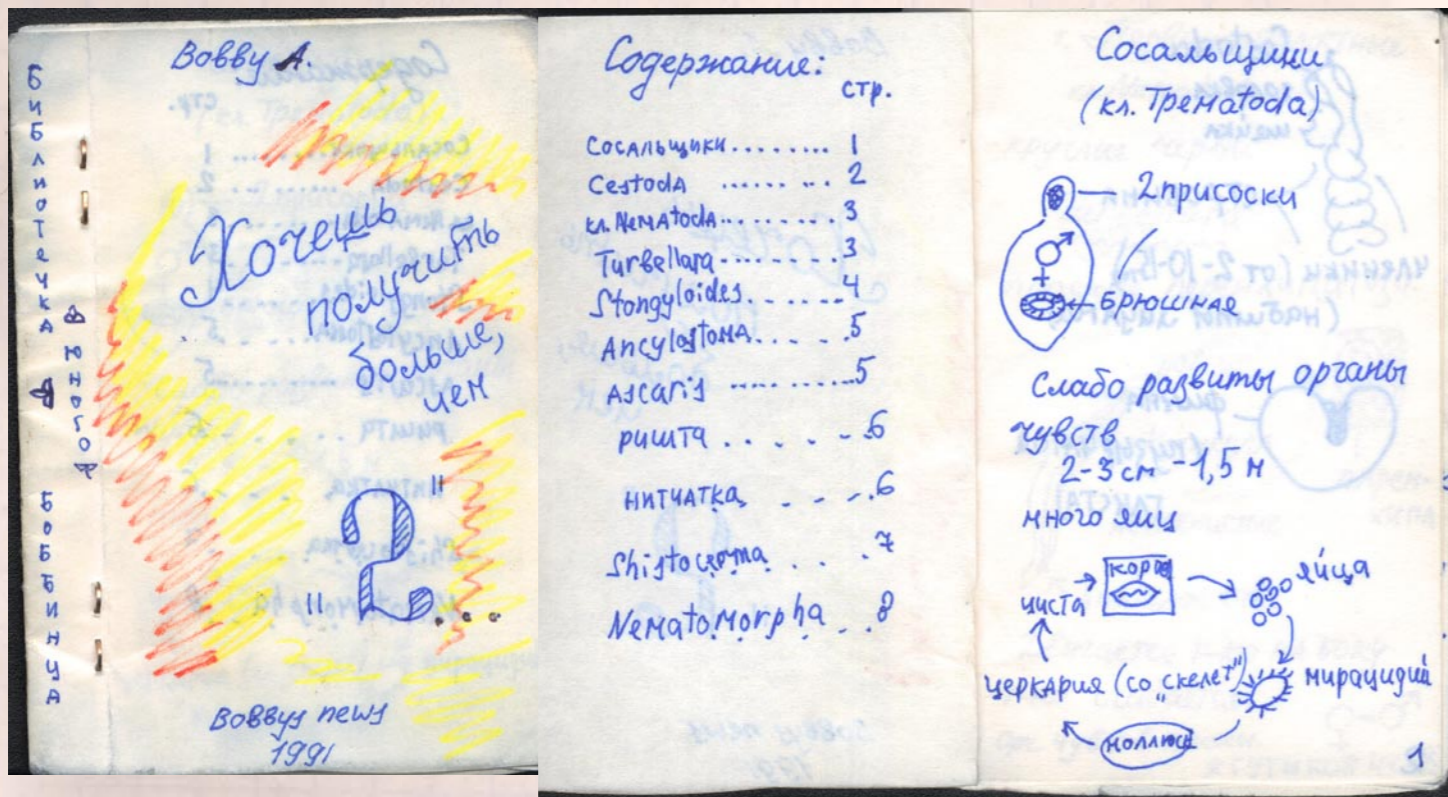 Bobby A.
БИБЛИОТЕЧКА ЮНОГО БОББИНЦА
Хочешь
получить
больше,
чем
"2"...
Bobbys news
1991
Содержание:
стр.
Сосальщики......... 1
Cestoda ........ 2
кл. Nematoda......... 3
Turbellara........ 3
Stongyloides....... 4
Ancylostoma..... 5
Ascaris .......... 5
ришта . . . . . 6
нитчатка . . . . 6
Shistocroma . . . 7
Nematomorpha . . 8
Сосальщики
(кл. Трематоda)
2 присоски
брюшная
Слабо развиты органы
чувств
2-3 см - 1,5 м
много яиц
циста
яйца
церкария (со „скелет")
мирацидий
моллюск
1